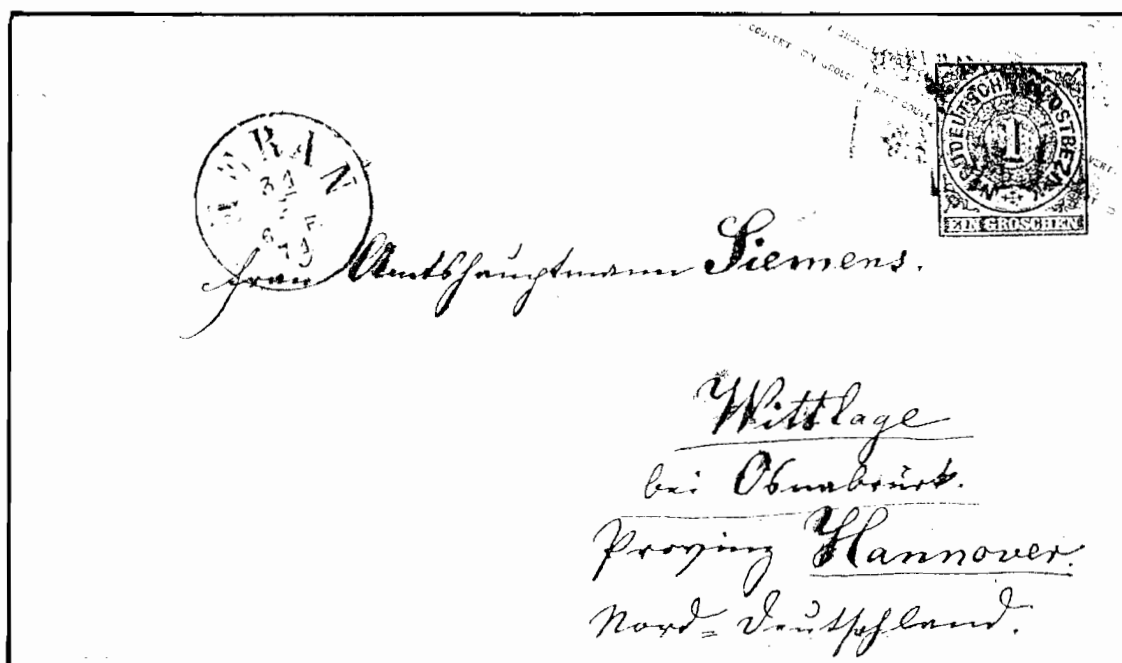 NORDDEUTSCHER POSTBEZIRK
1
EIN GROSCHEN
Frau Amtshauptmann Siemens.
Wittlage
bei Osnabrück.
Provinz Hannover.
Nord=Deutschland.